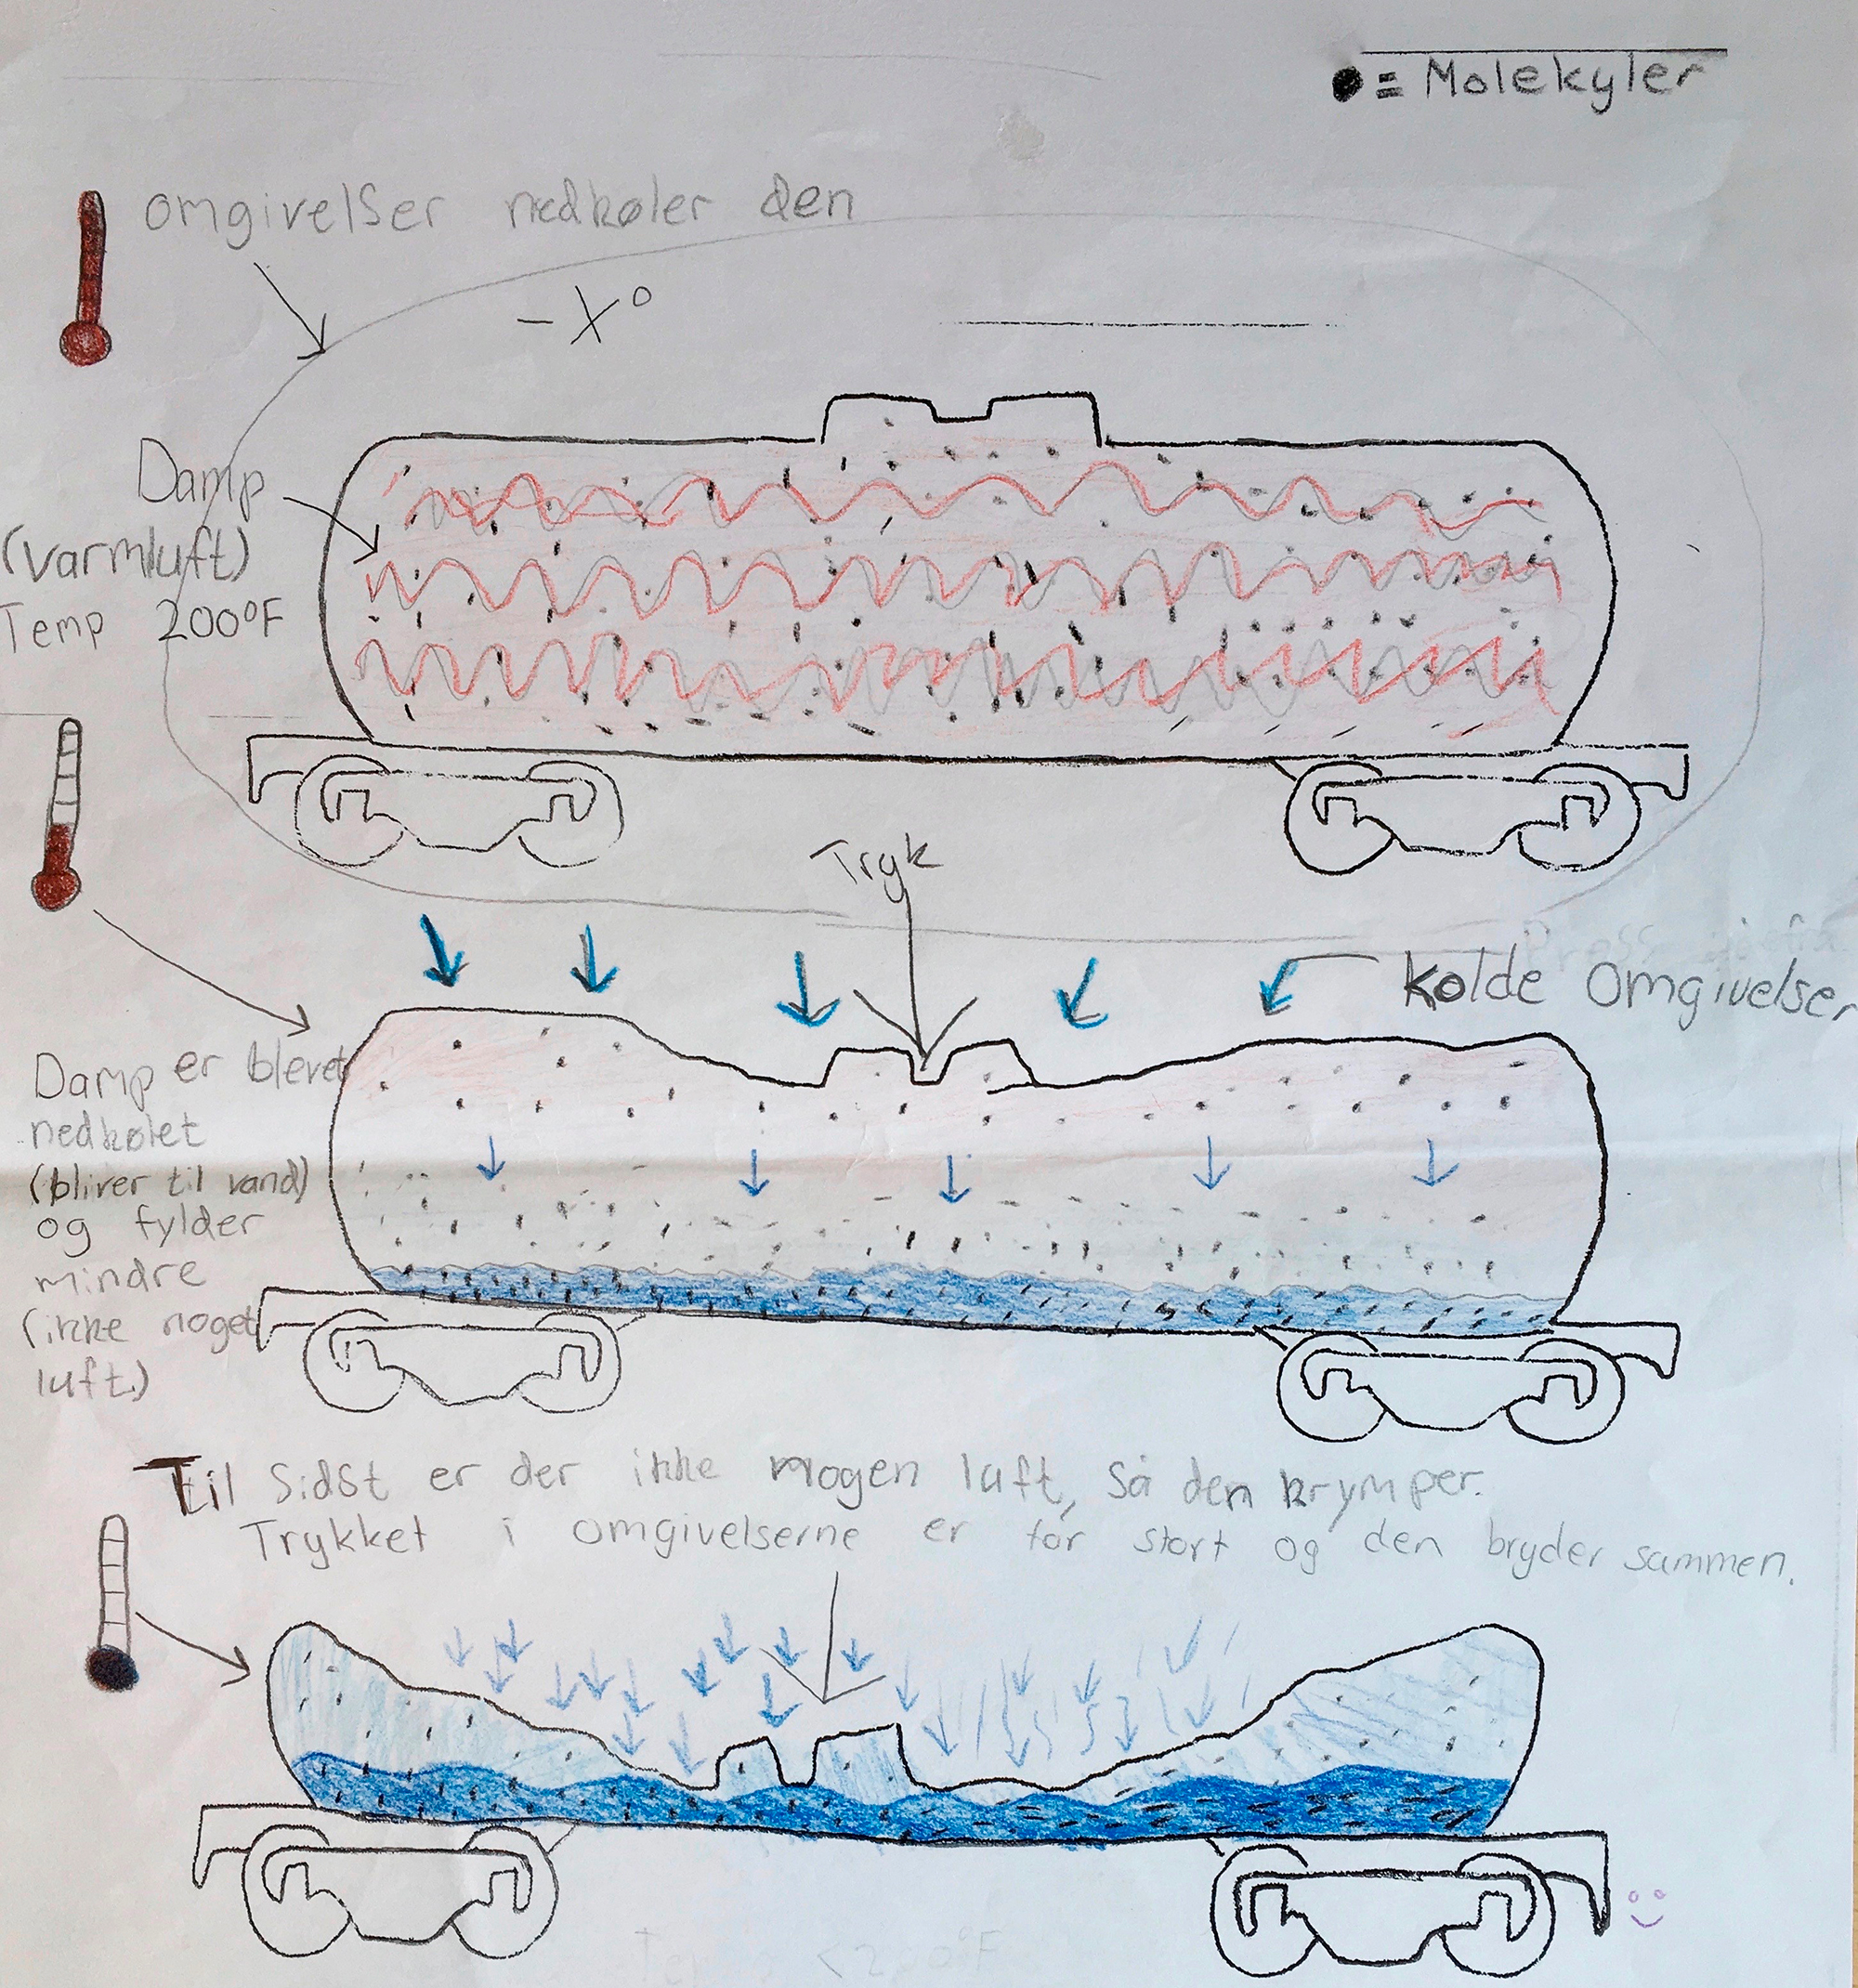 = Molekyler
omgivelser nedkøler den
-X°
Damp
(varmluft)
Temp 200°F
Tryk
kolde omgivelser
Damp er blevet
nedkølet
(bliver til vand)
og fylder
mindre
(ikke noget
luft.)
Til Sidst er der ikke nogen luft, så den krymper.
Trykket i omgivelserne er for stort og den bryder sammen.